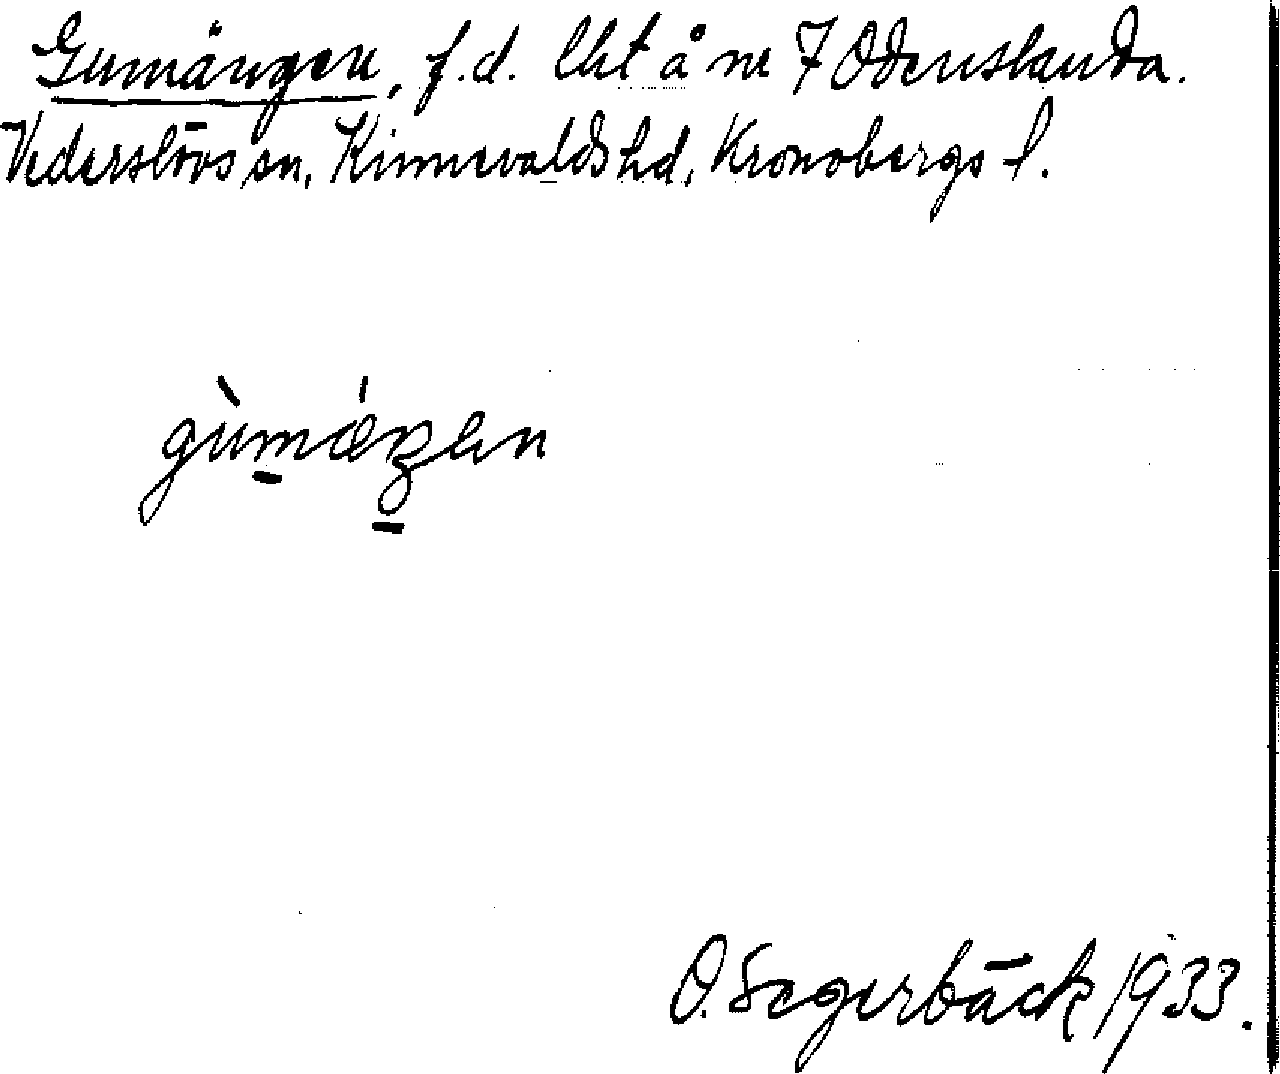 Gumängen, f.d. lht å nr 7 Odenslanda.
Vederslövs sn, Kinnevalds hd, Kronobergs l.
gùmǽŋen
O. Segerbäck 1933.